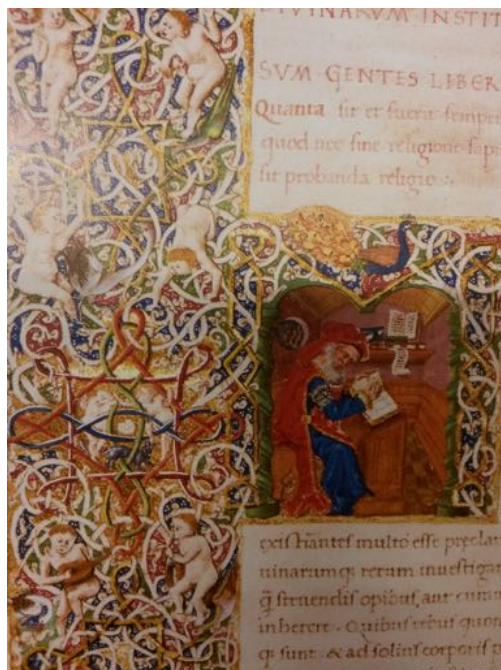 DIVINARUM INSTIT
SVM GENTES LIBER
Quanta sit et fuerit semper
quod nec sine religione sapi
sit probanda religio :.
existiantes multo esse preclar
uinarumq; rerum inuestigar
q̃ struendis opibus, aut cumu
inherere. Quibus rebus quon
q; sunt. & ad solius corporis